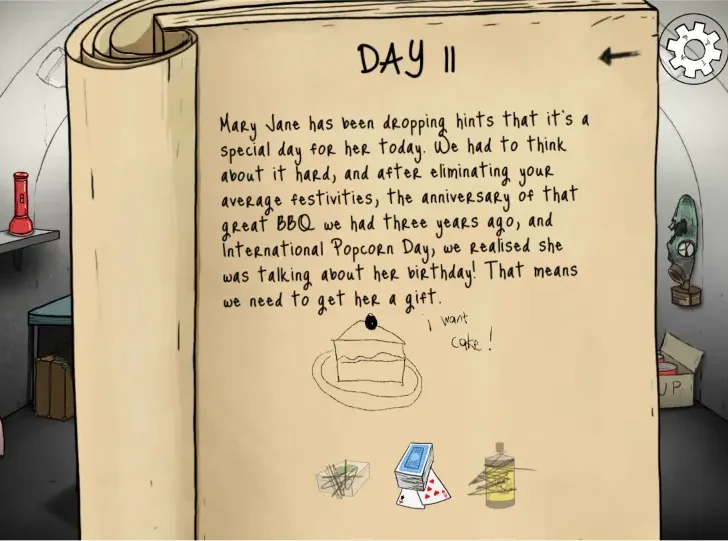 DAY 11
Mary Jane has been dropping hints that it's a
special day for her today. We had to think
about it hard, and after eliminating your
average festivities, the anniversary of that
great BBQ we had three years ago, and
International Popcorn Day, we realised she
was talking about her birthday! That means
we need to get her a gift.
i want
cake!
UP